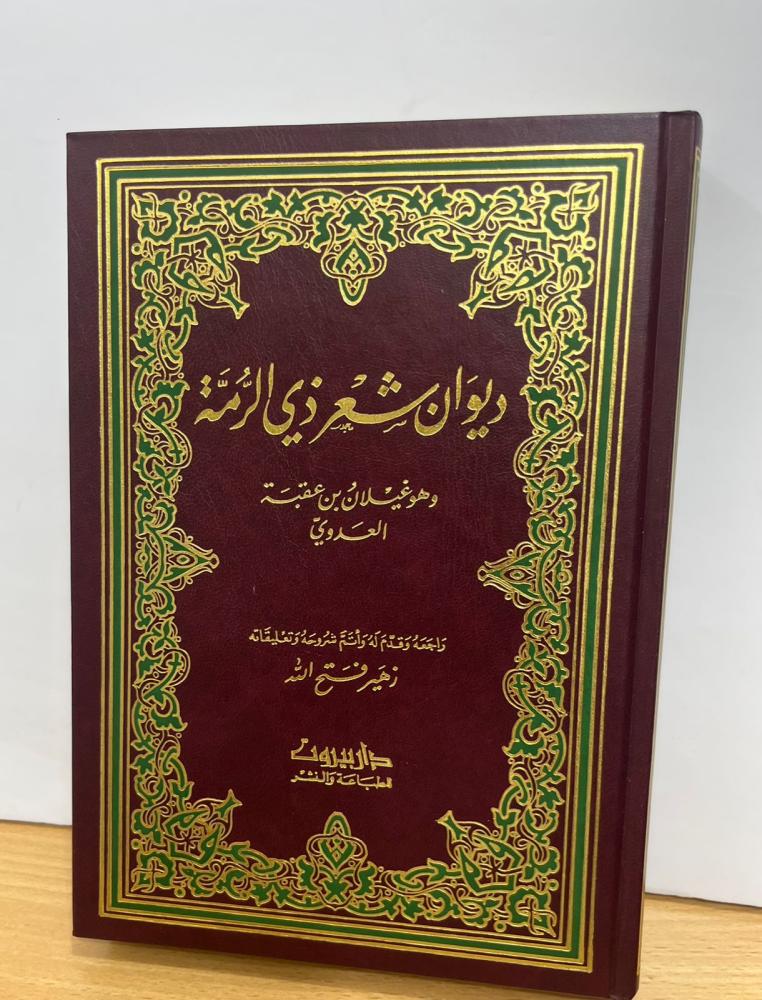 ديوَان شعْر ذي الرُّمَّة
وهو غيْلانُ بن عقبَة
العَدويّ
رَاجعَهُ وَقدّمَ لَهُ وَأتمَّ شرُوحَهُ وَتعْليقَاته
زهَير فتَح الله
دار بيروت
للطبَاعَة وَالنشْر